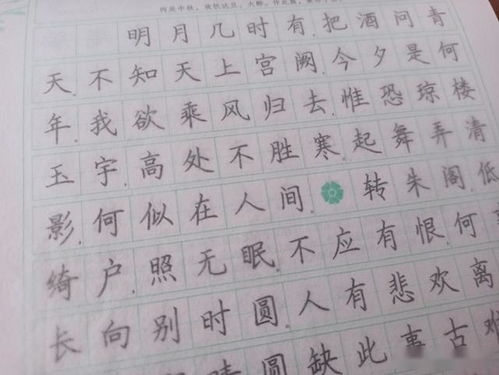 丙辰中秋，欢饮达旦，大醉，作此篇，
明月几时有.把酒问青
天.不知天上宫阙.今夕是何
年.我欲乘风归去.惟恐琼楼
玉宇.高处不胜寒.起舞弄清
影.何似在人间.转朱阁.低
绮户.照无眠.不应有恨.何
长向别时圆.人有悲欢离
圆缺此事古难